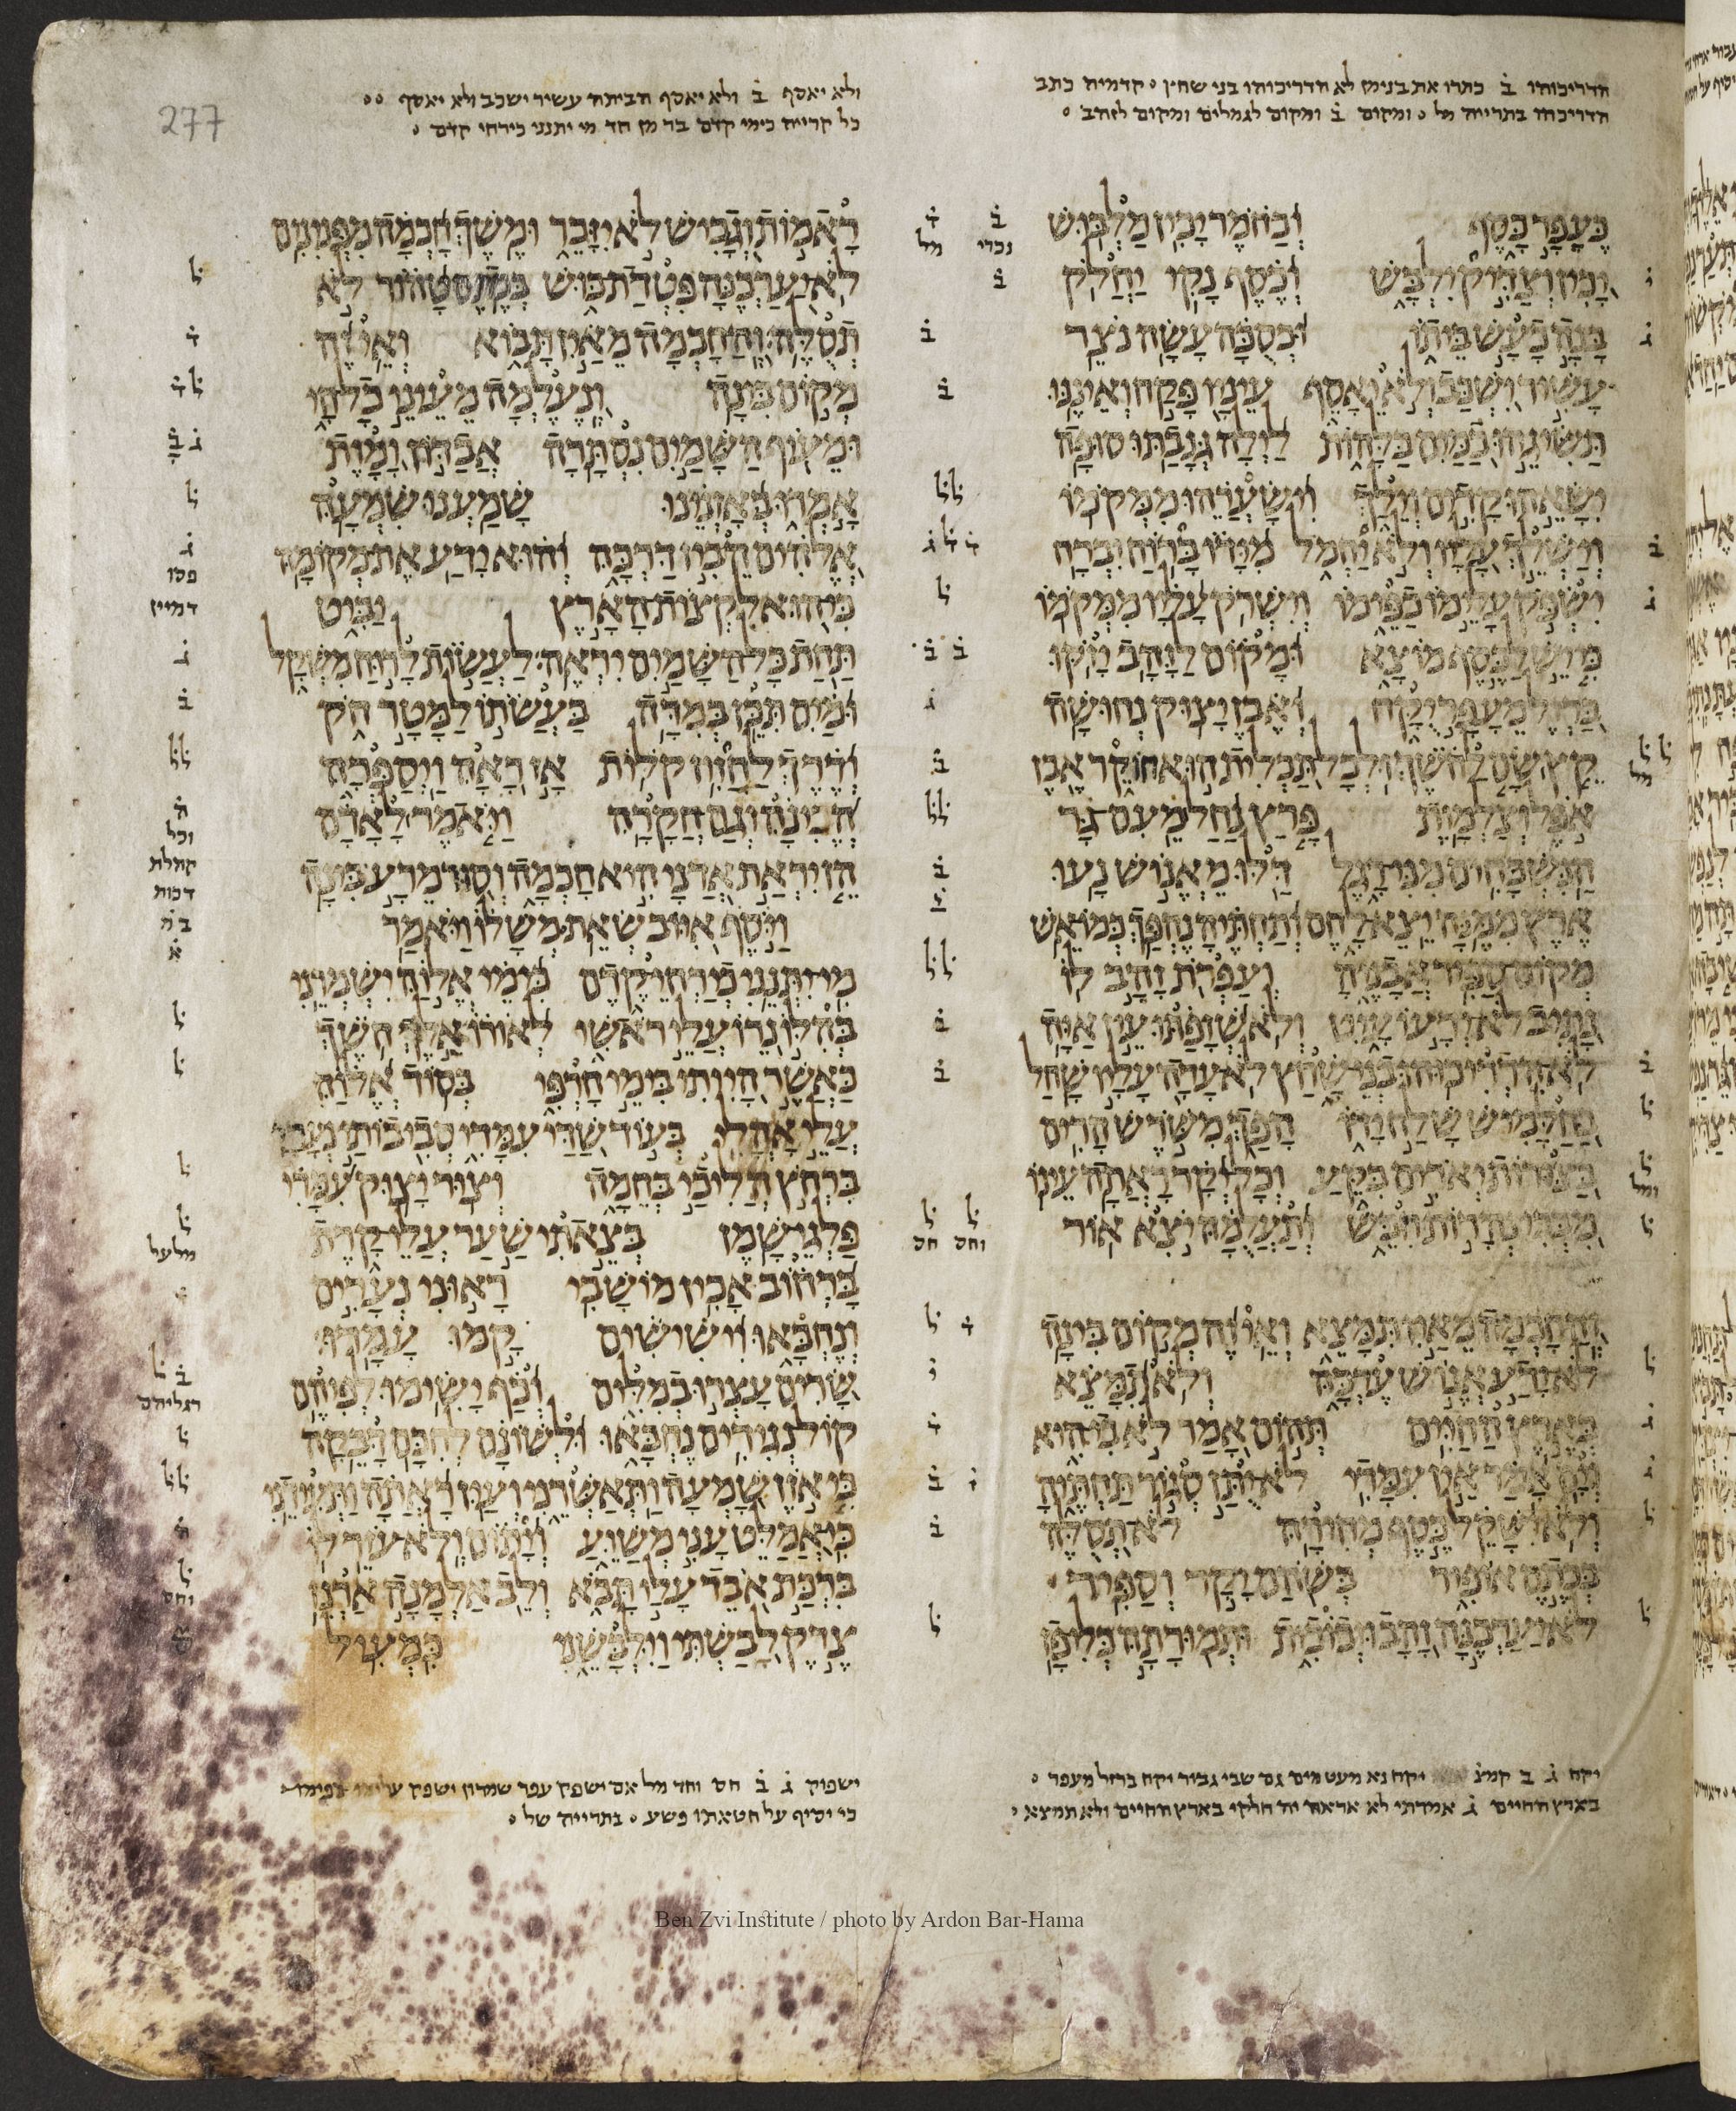 277
הדריכוהו ב כתרו את בנימן לא הדריכוהו בני שחץ קדמיה כתב
הדריכהו בתרייה מל ומקום ב ומקום לגמלים ומקום לזהב
ולא יאסף ב ולא יאסף הביתה עשיר ישכב ולא יאסף
כל קרייה כימי קדם בר מן חד מי יתנני כירחי קדם
כעפר כסף וכחמר יכין מלבוש
יכין וצדיק ילבש וכסף נקי יחלק
בנה כעש ביתו וכסכה עשה נצר
עשיר ישכב ולא יאסף עיניו פקח ואיננו
תשיגהו כמים בלהות לילה גנבתו סופה
ישאהו קדים וילך וישערהו ממקמו
וישלך עליו ולא יחמל מידו ברוח יברח
ישפק עלימו כפימו וישרק עליו ממקמו
כי יש לכסף מוצא ומקום לזהב יזקו
ברזל מעפר יקח ואבן יצוק נחושה
קץ שם לחשך ולכל תכלית הוא חוקר אבן
אפל וצלמות פרץ נחל מעם גר
הנשכחים מני רגל דלו מאנוש נעו
ארץ ממנה יצא לחם ותחתיה נהפך כמו אש
מקום ספיר אבניה ועפרת זהב לו
נתיב לא ידעו עיט ולא שזפתו עין איה
לא הדריכוהו בני שחץ לא עדה עליו שחל
בחלמיש שלח ידו הפך משרש הרים
בצורות יארים בקע וכל יקר ראתה עינו
מבכי נהרות חבש ותעלמה יצא אור
והחכמה מאין תמצא ואי זה מקום בינה
לא ידע אנוש ערכה ולא תמצא
בארץ החיים תהום אמר לא בי היא
וים אמר אין עמדי לא יתן סגור תחתיה
ולא ישקל כסף מחירה לא תסלה
בכתם אופיר בשהם יקר וספיר
לא יערכנה זהב וזכוכית ותמורתה כלי פז
ראמות וגביש לא יזכר ומשך חכמה מפנינים
לא יערכנה פטדת כוש בכתם טהור לא
תסלה והחכמה מאין תבוא ואי זה
מקום בינה ונעלמה מעיני כל חי
ומעוף השמים נסתרה אבדון ומות
אמרו באזנינו שמענו שמעה
אלהים הבין דרכה והוא ידע את מקומה
כי הוא לקצות הארץ יביט
תחת כל השמים יראה לעשות לרוח משקל
ומים תכן במדה בעשתו למטר חק
ודרך לחזיז קלות אז ראה ויספרה
הכינה וגם חקרה ויאמר לאדם
הן יראת אדני היא חכמה וסור מרע בינה
ויסף איוב שאת משלו ויאמר
מי יתנני כירחי קדם כימי אלוה ישמרני
בהלו נרו עלי ראשי לאורו אלך חשך
כאשר הייתי בימי חרפי בסוד אלוה
עלי אהלי בעוד שדי עמדי סביבותי נערי
ברחץ הליכי בחמה וצור יצוק עמדי
פלגי שמן בצאתי שער עלי קרת
ברחוב אכין מושבי ראוני נערים
ונחבאו וישישים קמו עמדו
שרים עצרו במלים וכף ישימו לפיהם
קול נגידים נחבאו ולשונם לחכם דבקה
כי אזן שמעה ותאשרני ועין ראתה ותעידני
כי אמלט עני משוע ויתום ולא עזר לו
ברכת אבד עלי תבא ולב אלמנה ארנן
צדק לבשתי וילבשני כמעיל
יקח ג ב קמצ יקח נא מעט מים גם שבי גבור יקח ברזל מעפר
בארץ החיים ג אמרתי לא אראה יה חלקי בארץ החיים ולא תמצא
ישפוק ג ב חס וחד מל אם ישפק עפר שמרון ישפק עלימו כפימו
כי יסיף על חטאתו פשע בתרייה של
Ben Zvi Institute / photo by Ardon Bar-Hama